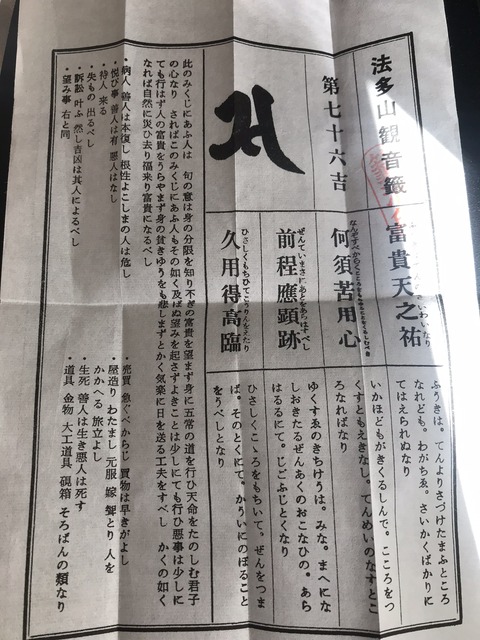 法多山観音籤
第七十六吉
富貴天之祐
何須苦用心
なんぞすべからくところをもちゆることをくるしむべき
前程應顕跡
ぜんていまさにあとをあらはすべし
久用得高臨
ひさしくもちひてこうりんをえたり
ふうきは。てんよりさづけたまふところ
なれども。わがちゑ。さいかくばかりに
てはえられぬなり
いかほどもがきくるしんで。こころをつ
くすともえきなし。てんめいのなすとこ
ろなればなり
ゆくすゑのきちけうは。みな。まへにな
しおきたるぜんあくのおこなひの。あら
はるるにて。じごふじとくなり
ひさしくこゝろをもちいて。ぜんをつま
ば。そのとくにて。かういにのぼること
をうべしとなり
此のみくじにあふ人は 句の意は身の分限を知り不義の富貴を望まず身に五常の道を行ひ天命をたのしむ君子
の心なり さればこのみくじにあふ人もその如く及ばぬ望みを起さずよきことは少しにても行ひ悪事は少しに
ても行はず人の富貴をうらやまず身の貧きゆうをも悲しまずとかく気楽に日を送る工夫をすべし かくの如く
なれば自然に災ひ去り福来り富貴になるべし
・病人 善人は本復し 根性よこしまの人は危し
・悦び事 善人は有 悪人はなし
・待人 来る
・失もの 出るべし
・訴訟 叶ふ 然し吉凶は其人によるべし
・望み事 右と同
・売買 急ぐべからじ 買物は早きがよし
・屋造り わたまし 元服 嫁 聟とり 人を
かかへる 旅立よし
・生死 善人は生き悪人は死す
・道具 金物 大工道具 硯箱 そろばんの類なり